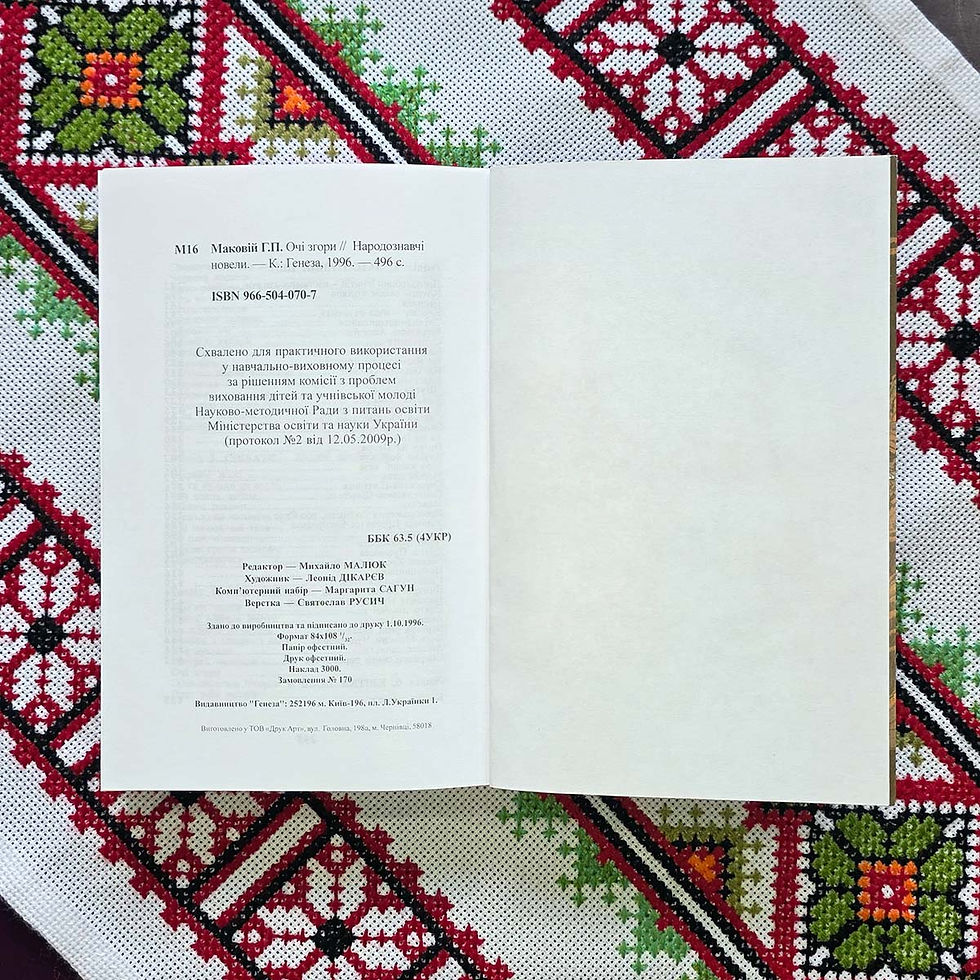 М16 Маковій Г.П. Очі згори // Народознавчі
новели. — К.: Генеза, 1996. — 496 с.
ISBN 966-504-070-7
Схвалено для практичного використання
у навчально-виховному процесі
за рішенням комісії з проблем
виховання дітей та учнівської молоді
Науково-методичної Ради з питань освіти
Міністерства освіти та науки України
(протокол №2 від 12.05.2009р.)
ББК 63.5 (4УКР)
Редактор — Михайло МАЛЮК
Художник — Леонід ДІКАРЄВ
Комп'ютерний набір — Маргарита САГУН
Верстка — Святослав РУСИЧ
Здано до виробництва та підписано до друку 1.10.1996.
Формат 84х108 ¹/₃₂.
Папір офсетний.
Друк офсетний.
Наклад 3000.
Замовлення № 170
Видавництво "Генеза": 252196 м. Київ-196, пл. Л.Українки 1.
Виготовлено у ТОВ «Друк Арт», вул. Головна, 198а, м. Чернівці, 58018